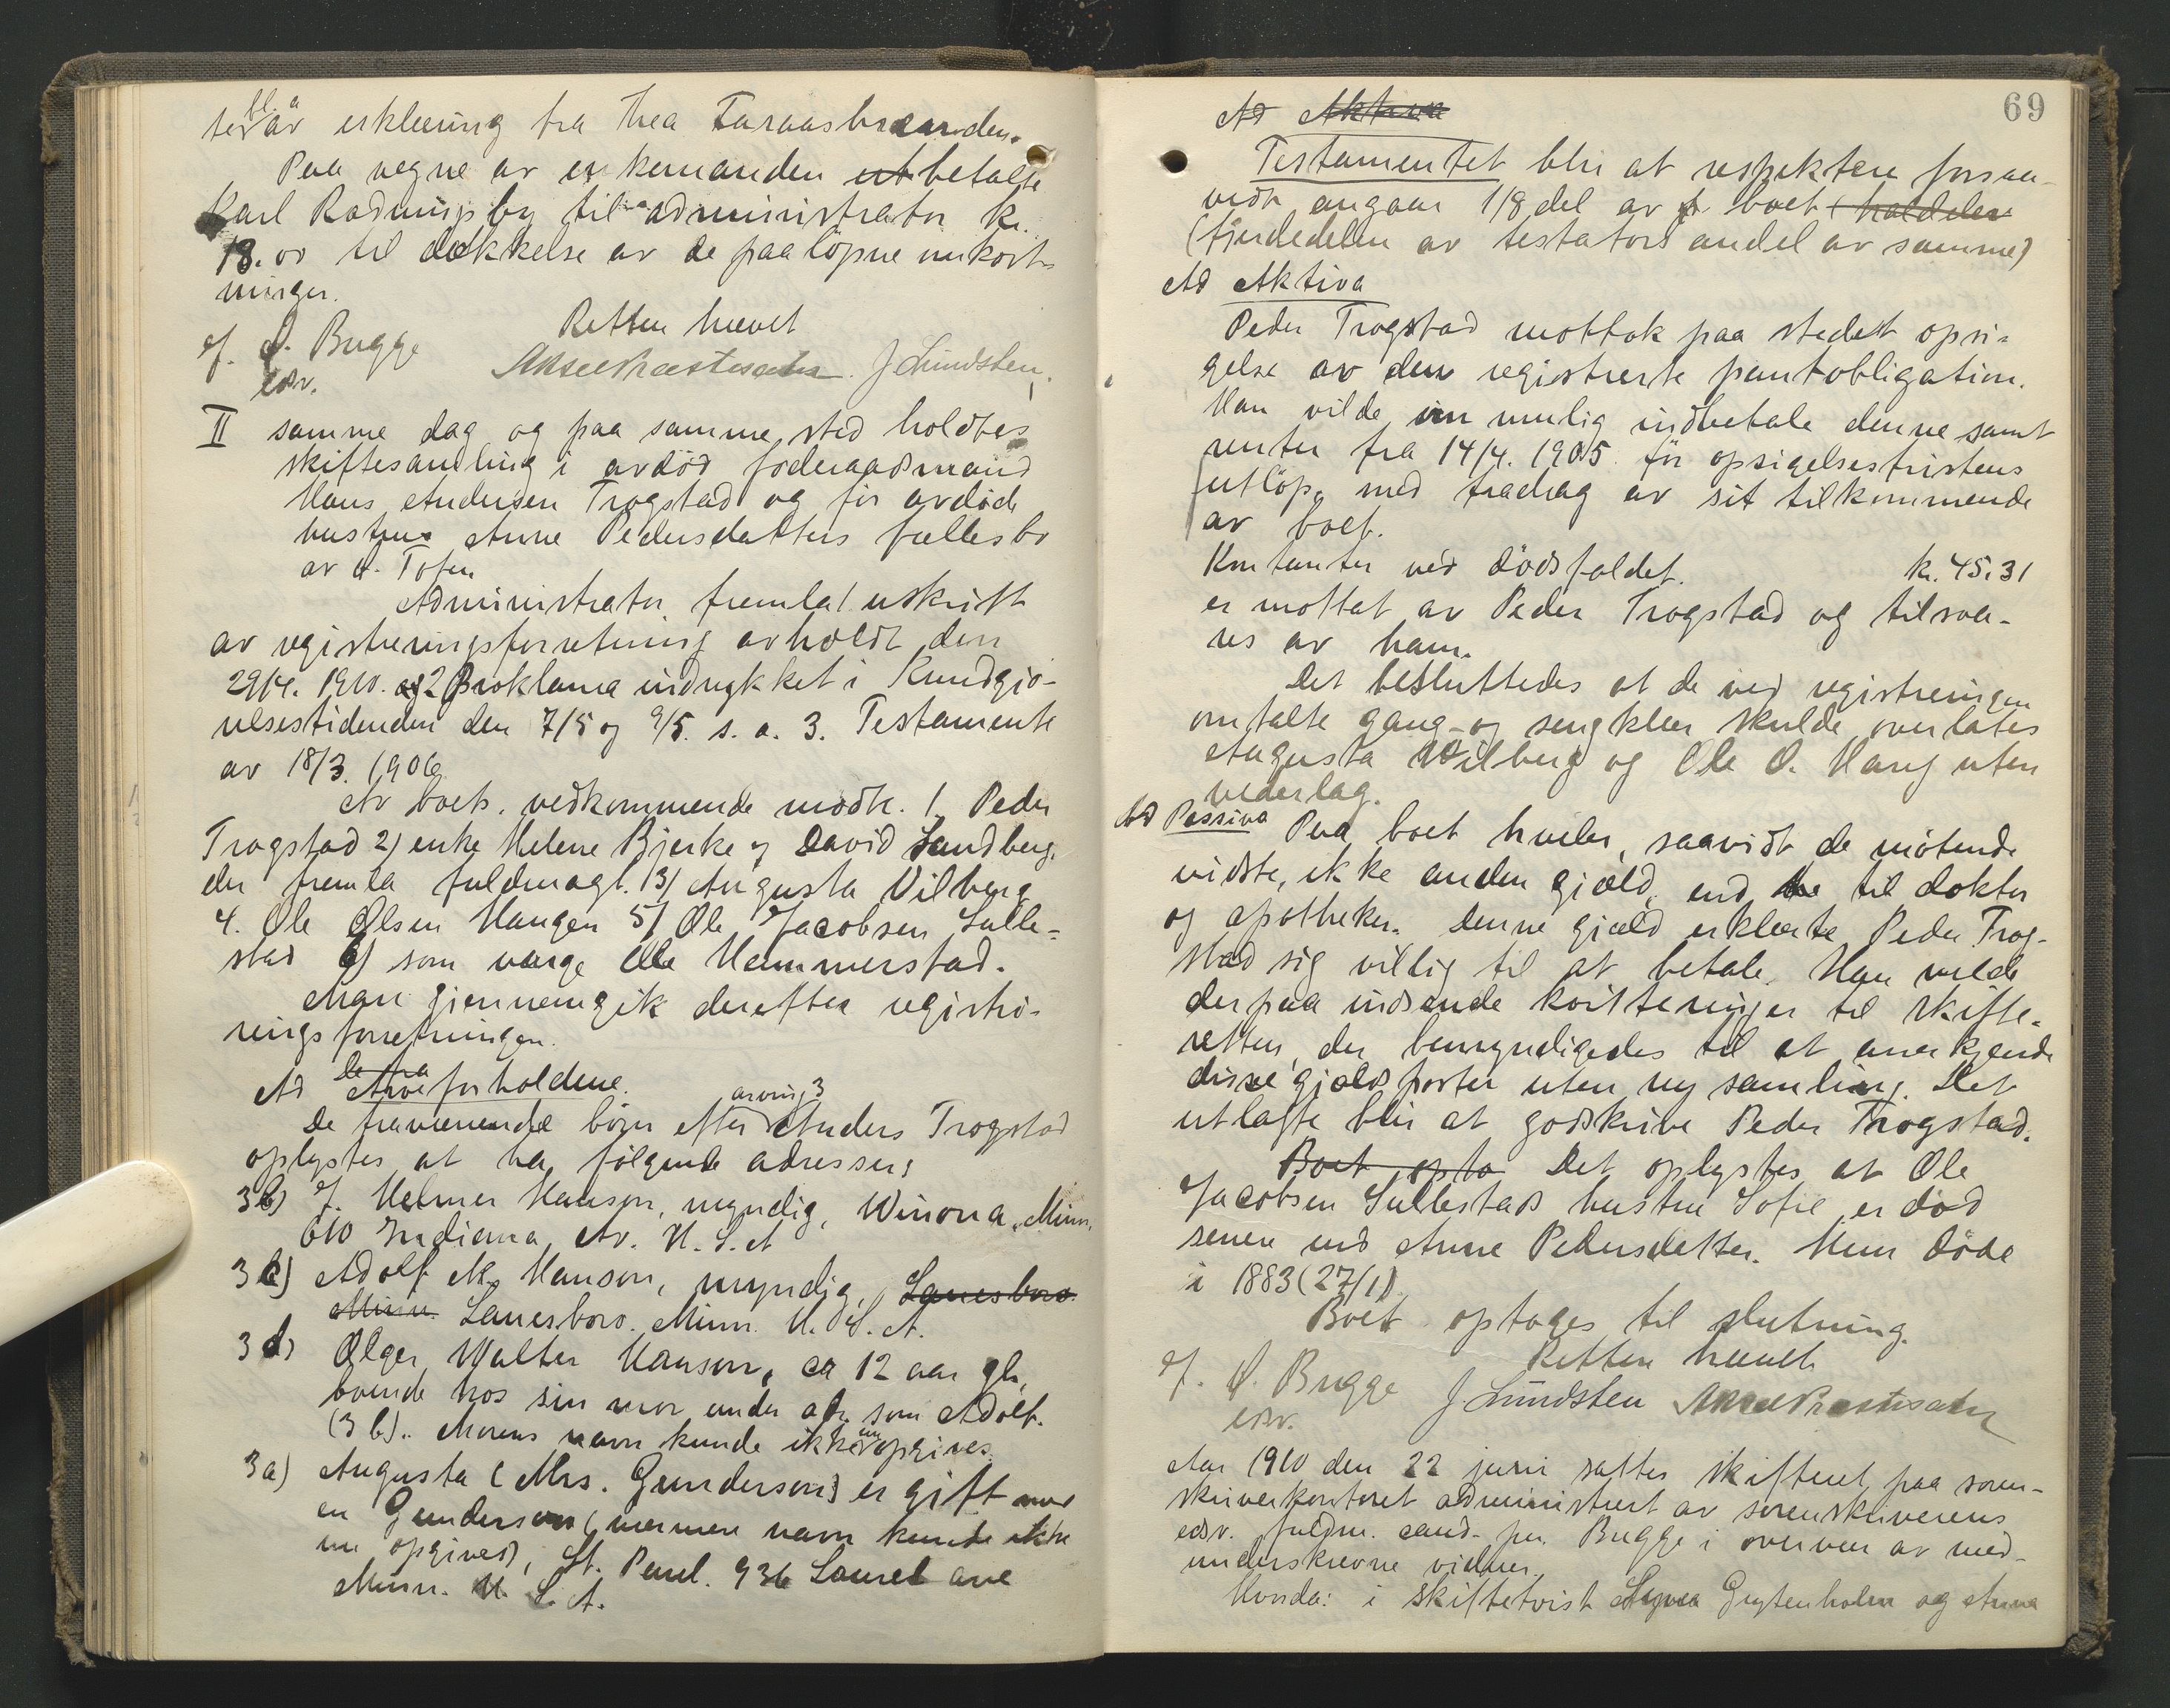 bl. a
ter er erklæring fra Thea
Paa vegne av enkemanden utbetalte
Karl til administrator kr.
18.00 til dækkelse av de paaløpne omkost-
ninger.
Retten hævet
J. O. Bugge
edsv.
J Lundsten.
II samme dag og paa samme sted holdtes
skiftesamling i avdød føderaadsmand
Hans Andersen Trogstad og før avdøde
hustru Anne Pedersdatters fællesbo
av Ø. Toten
Administrator fremla 1 utskrift
av registreringsforretning avholdt den
29/4. 1910. og 2 Proklama indrykket i Kundgjø-
relsestidenden den 7/5 og 9/5. s. a. 3. Testamente
av 18/3. 1906
Av boets vedkommende mødte. 1. Peder
Trogstad 2) enke Helene Bjerke og David Sandberg,
der fremla fuldmagt. 3) Augusta Vilberg
4. Ole Olsen Haugen 5) Ole Jacobsen Sulle-
stad 6) som værge Ole Hammerstad.
Man gjennemgik derefter registre-
ringsforretningen.
De fra
Ad Arveforholdene.
arving 3
De fraværende børn efter Anders Trogstad
oplystes at ha følgende adresser:
3b) J. Helmer Hanson, myndig, Winona, Minn.
610 Indiana Av. U. S. A
3c) Adolf M. Hanson, myndig, Lanesboro
Minn. Lanesboro. Minn. U. S. A.
3d) Olger Walter Hanson, ca 12 aar gl.,
boende hos sin mor under adr. som Adolf.
(3 b).. Morens navn kunde ikke nu opgives.
3a) Augusta (Mrs. Gunderson) er gift med
en Gunderson (nærmere navn kunde ikke
nu opgives), St. Paul. 936 Laurel ave
Minn. U. S. A.
69
Ad Aktiva
Testamentet blir at respektere forsaa-
vidt angaar 1/8 del av boet (haldelen
(fjerdedelen av testators andel av samme)
Ad Aktiva
Peder Trogstad mottok paa stedet opsi-
gelse av den registrerte pantobligation.
Han vilde om mulig indbetale denne samt
renter fra 14/4. 1905 før opsigelsesfristens
utløp, med fradrag av sit tilkommende
av boet.
Kontanter ved dødsfaldet. kr. 45.31
er mottat av Peder Trogstad og tilsva-
res av ham.
Det besluttedes at de ved registreringen
omtalte gang- og sengklær skulde overlates
Augusta Vilberg og Ole O. Haug uten
vederlag.
Ad Passiva Paa boet hviler, saavidt de møtende
vidste, ikke anden gjæld, end til doktor
og apotheker. Denne gjæld erklærte Peder Trog-
stad sig villig til at betale. Han vilde
derpaa indsende kvitteringer til skifte-
retten, der bemyndigedes til at anerkjende
disse gjældsposter uten ny samling. Det
utlagte blir at godskrive Peder Trogstad.
Boet opta Det oplystes at Ole
Jacobsen Sullestads hustru Sofie er død
senere end Anne Pedersdatter. Hun døde
i 1883 (27/1)
Boet optages til slutning.
Retten hævet
J. O. Bugge J Lundsten
edsv.
Aar 1910 den 22 juni sattes skifteret paa soren-
skriverkontoret administrert av sorenskriverens
edsv. fuldm. cand. jur. Bugge i overvær av med-
underskrevne vidner.
Hvorda: i skiftetvist og Anna